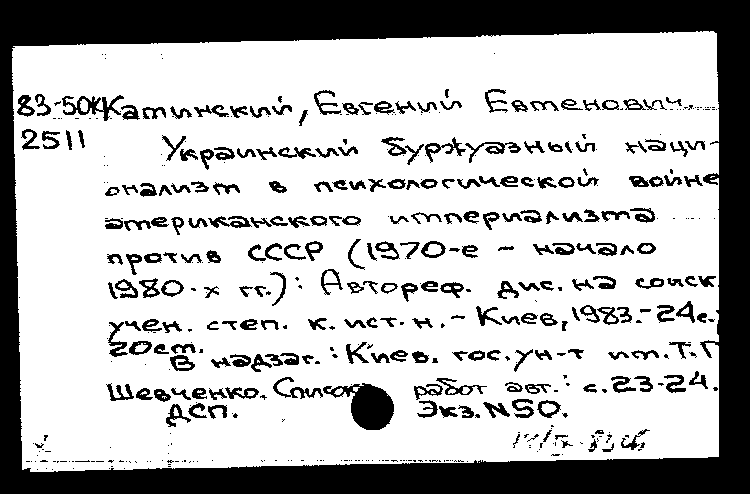 83-50К Каминский, Евгений Евменович.
2511 Украинский буржуазный наци-
онализм в психологической войне
американского империализма
против СССР (1970-е - начало
1980-х гг.): Автореф. дис. на соиск.
учен. степ. к. ист. н. - Киев, 1983. - 24с.;
20см.
В надзаг.: Киев. гос. ун-т им. Т. Г.
Шевченко. Список работ авт.: с. 23-24.
ДСП. Экз. N50.